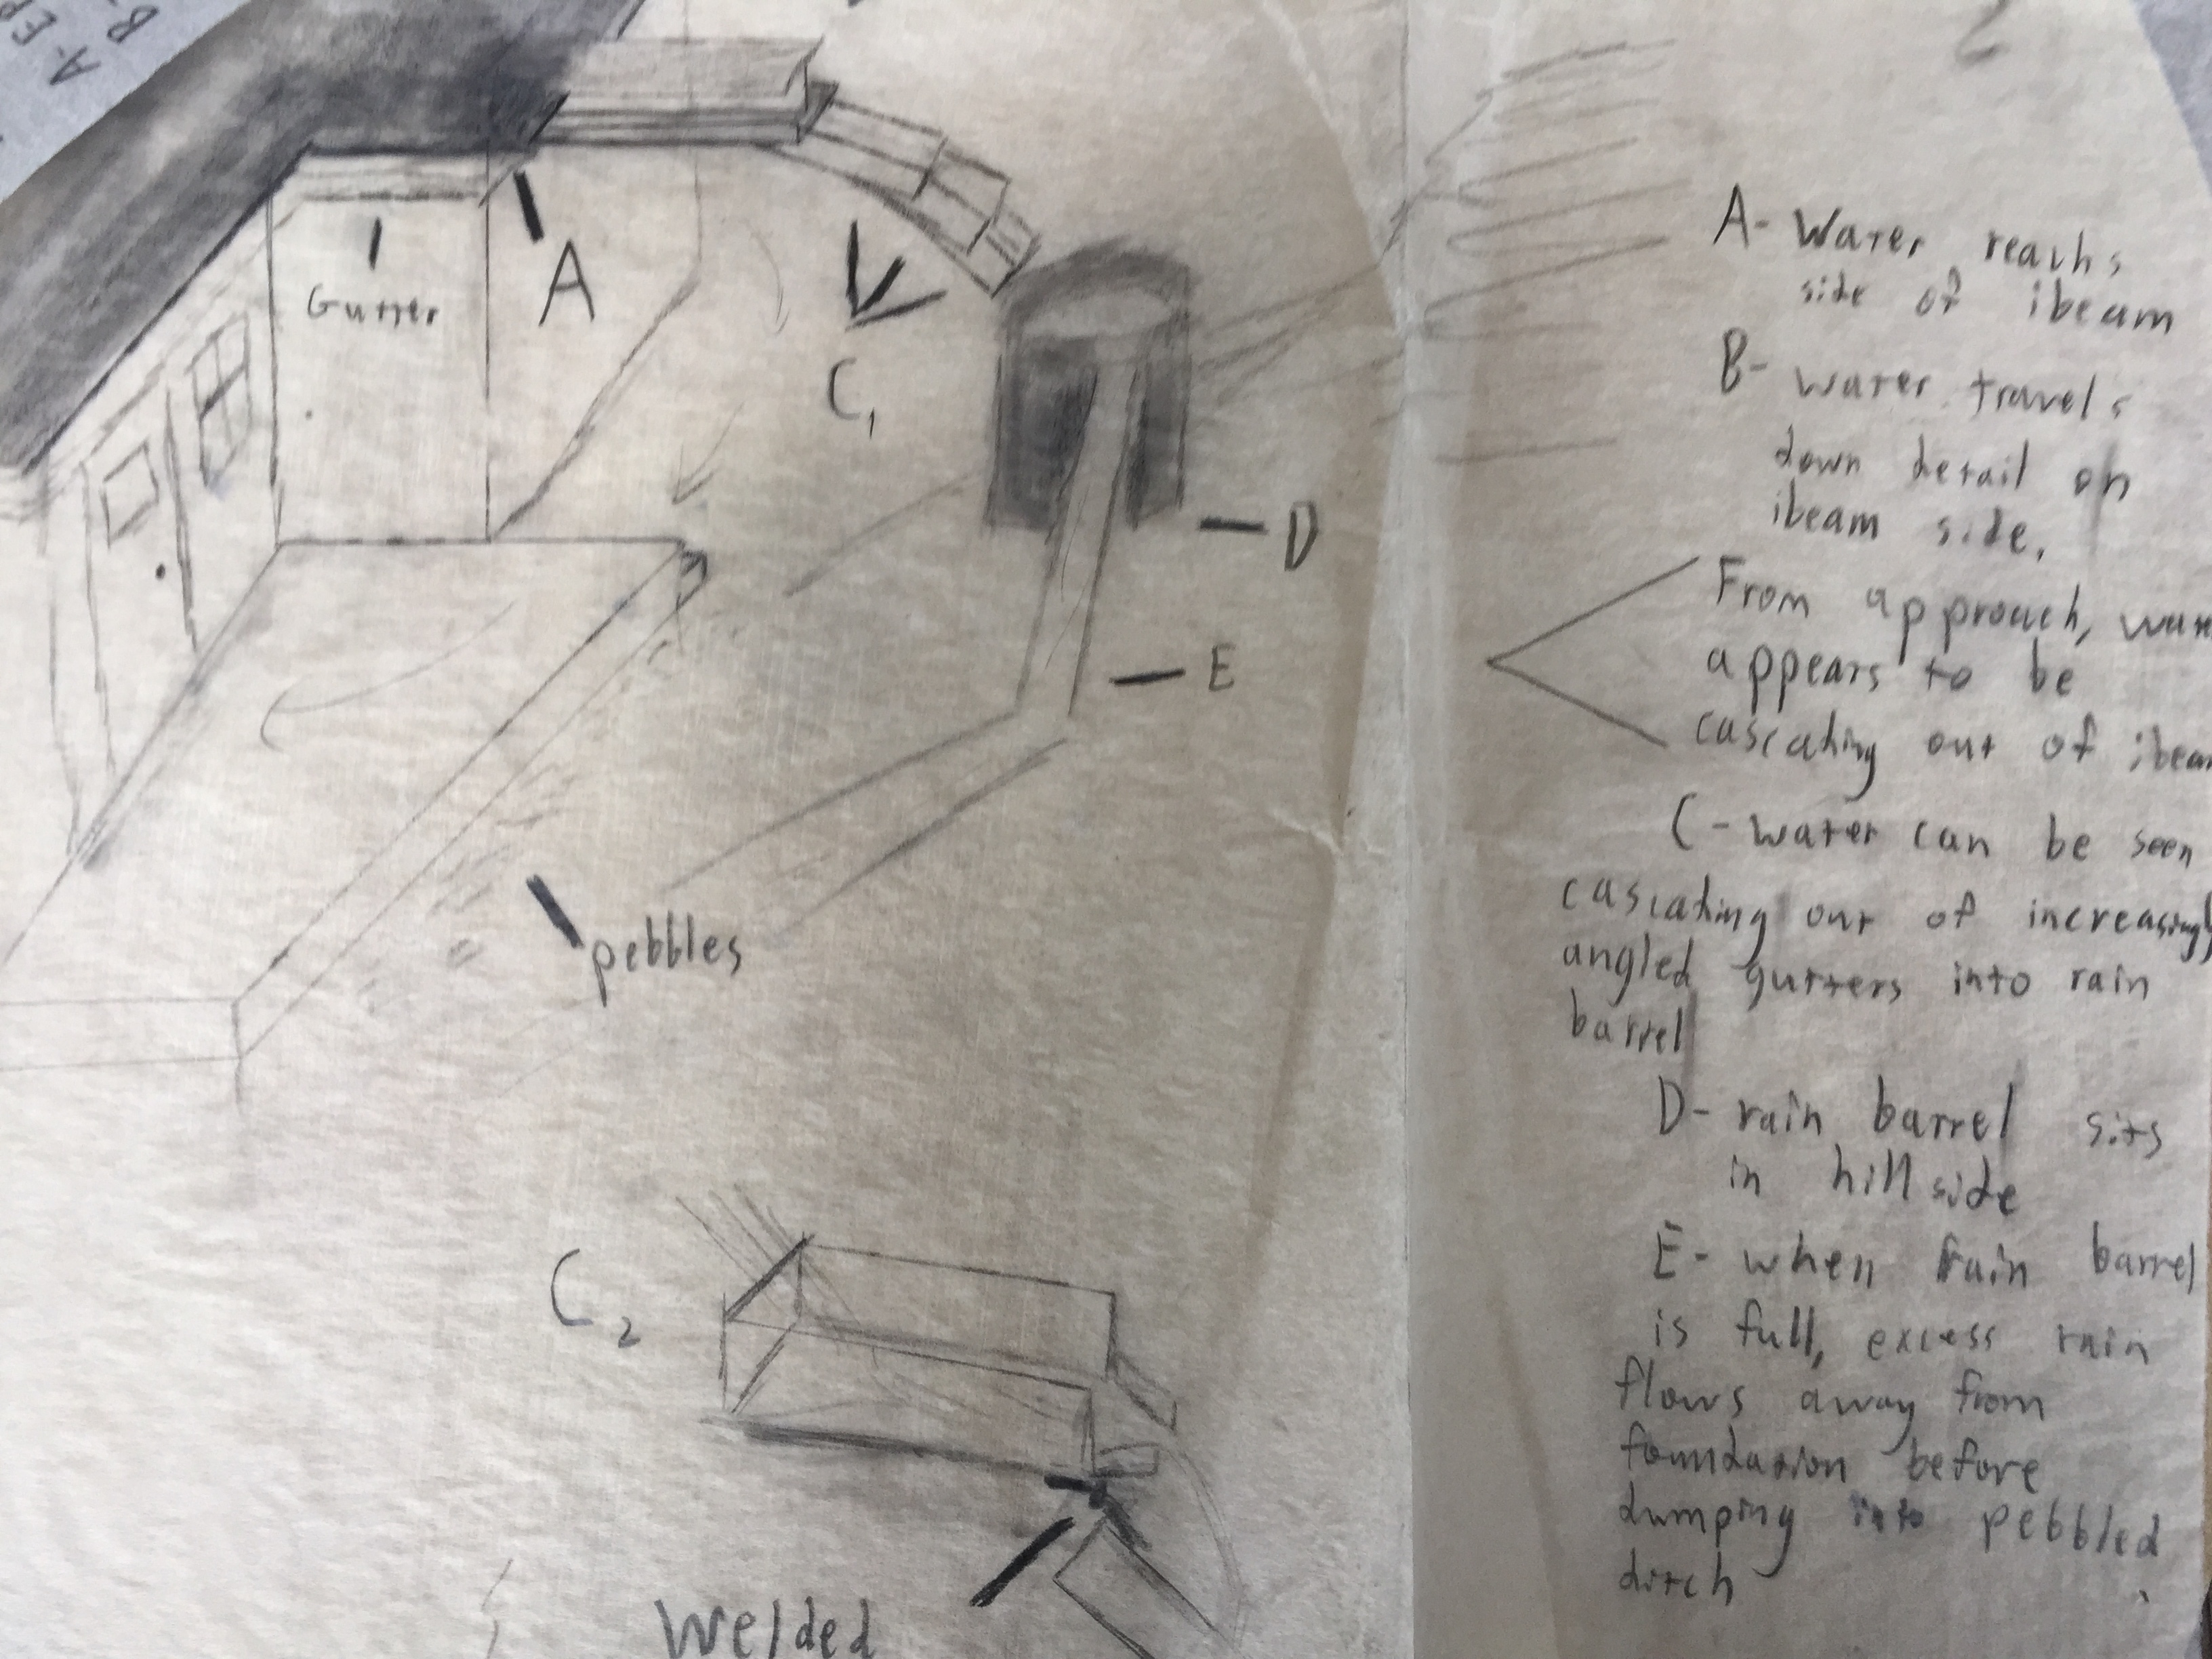 A-
B-
Gutter
A
C1
D
E
pebbles
C2
Welded
A- Water reachs
side of ibeam
B- water travels
down detail on
ibeam side.
From approach,
appears to be
cascating out of
C- water can be seen
cascating out of increasingly
angled gutters into rain
barrel
D- rain barrel sits
in hillside
E- when rain barrel
is full, excess rain
flows away from
foundation before
dumping into pebbled
ditch